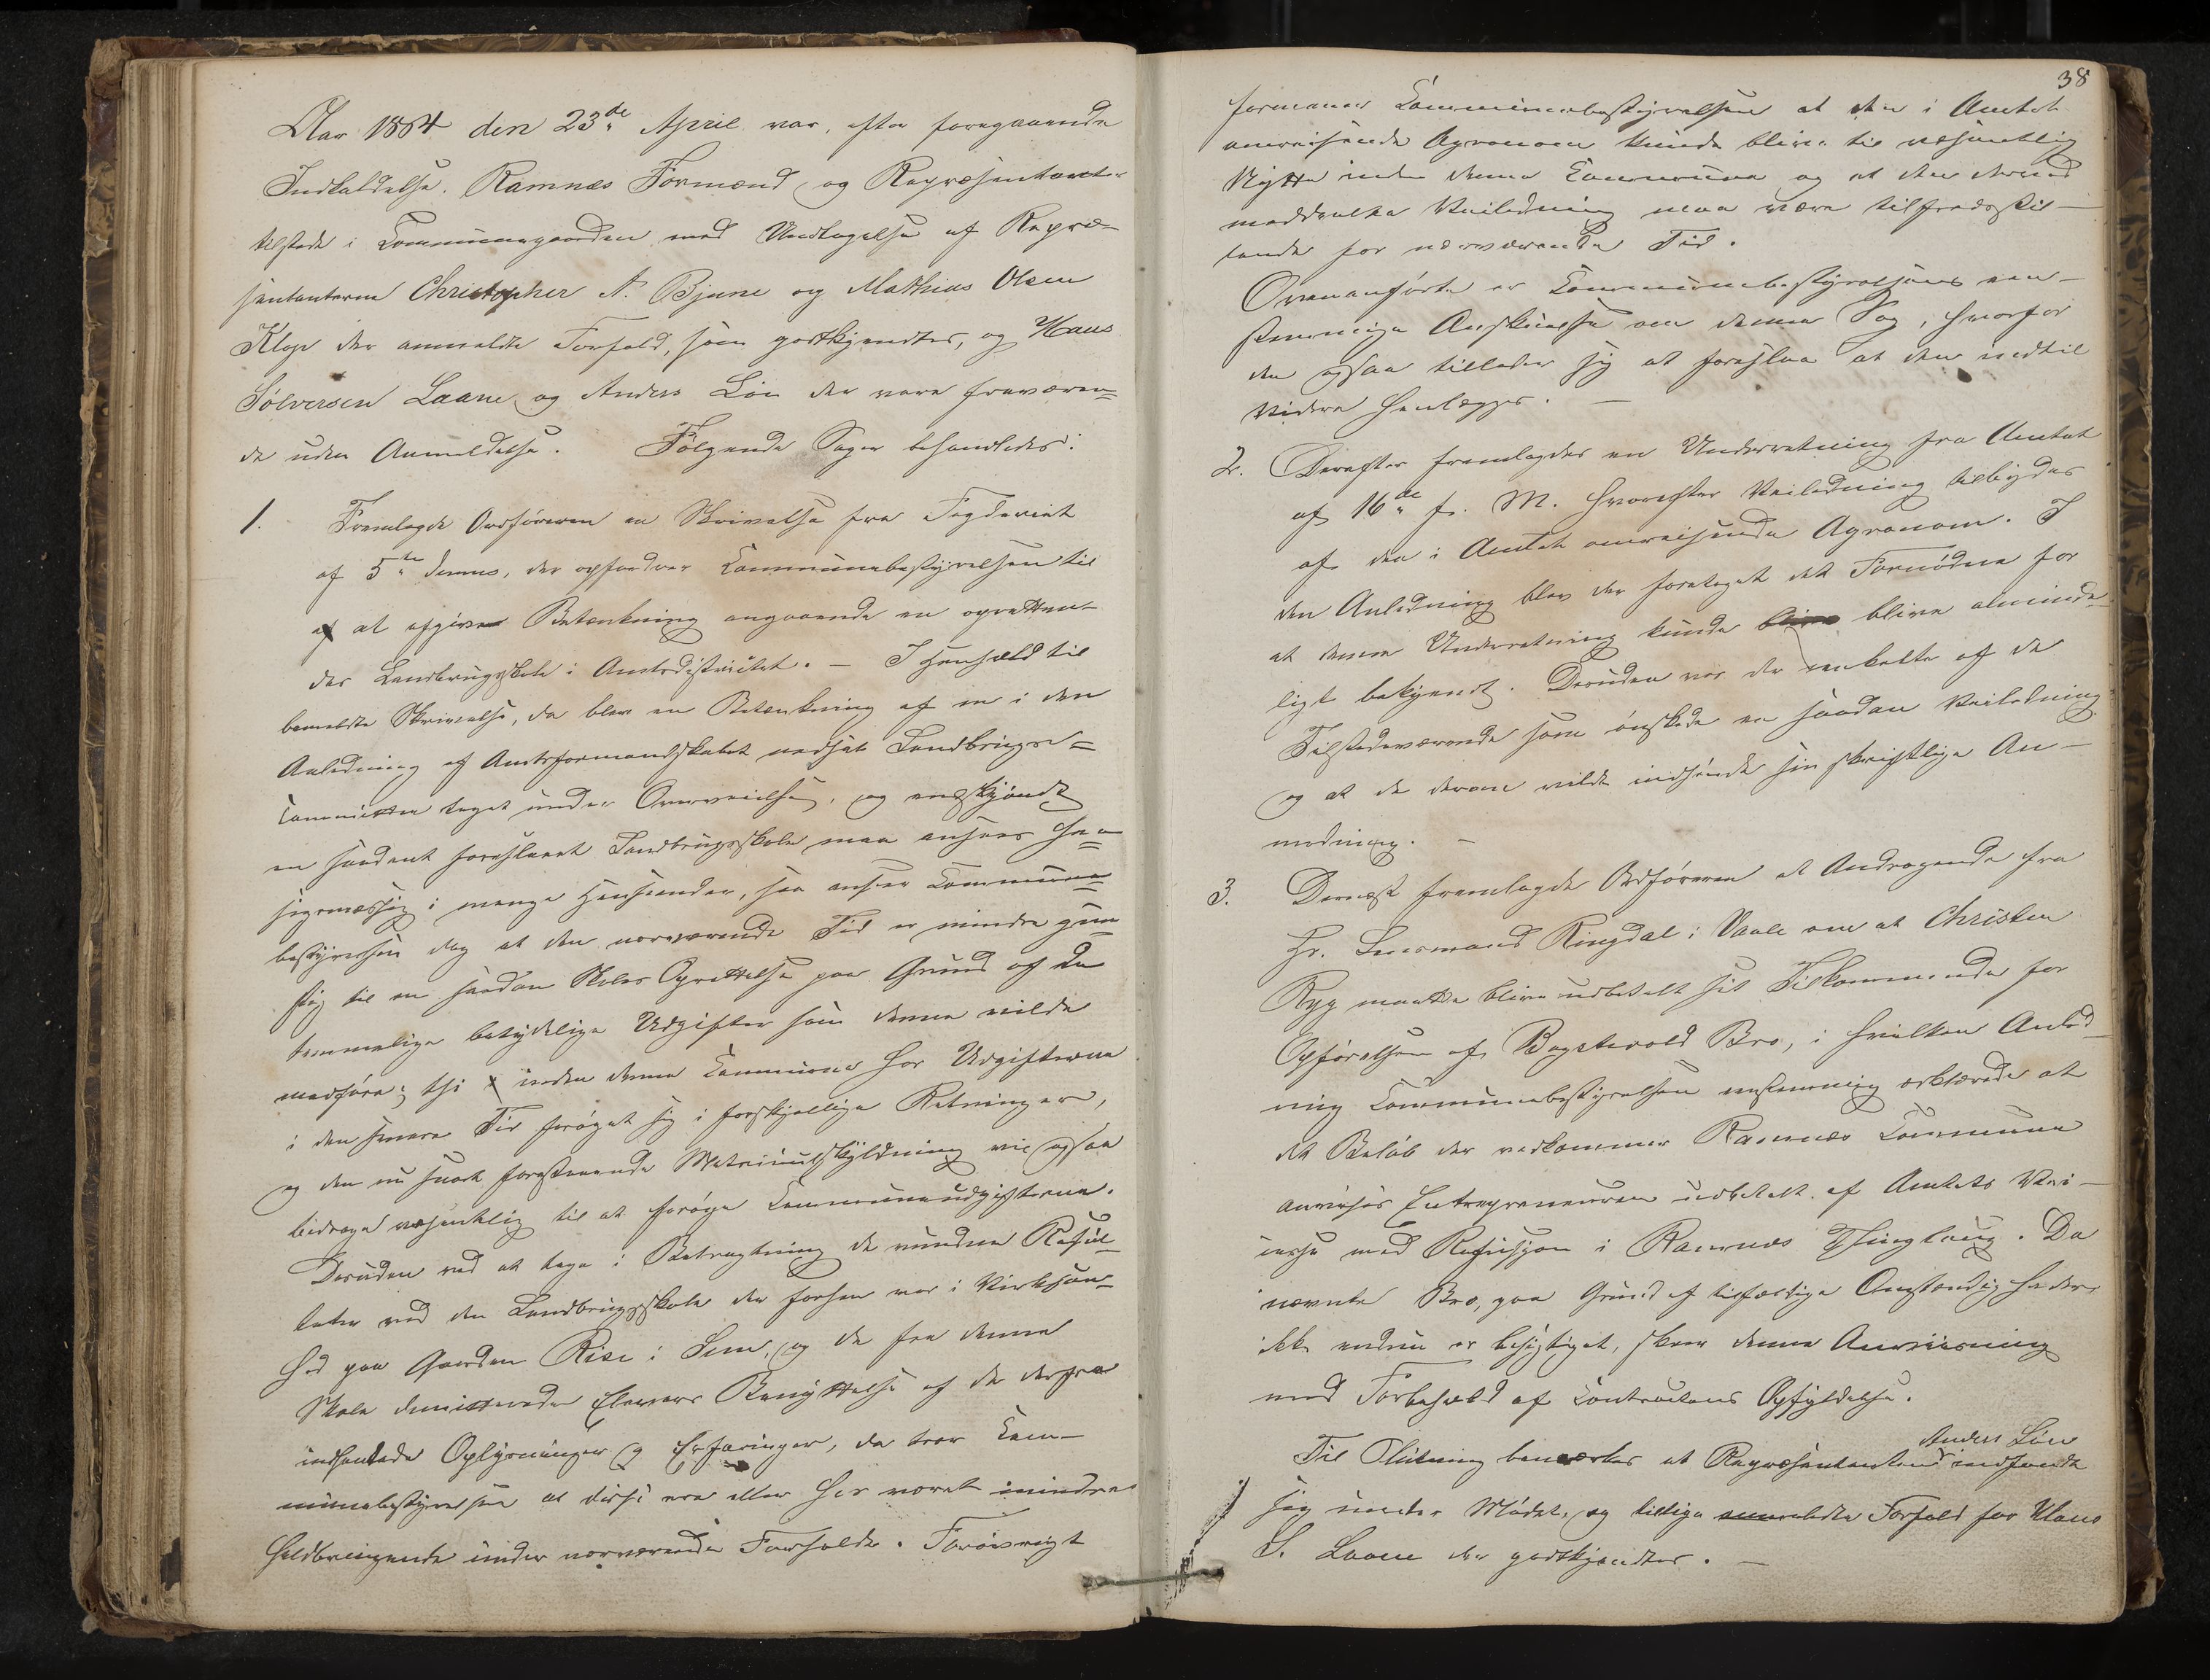 Aar 1864 den 23de April var, efter foregaaende
Indkaldelse, Ramnæs Formænd og Repræsentanter
tilstede i Communegaarden med Undtagelse af Repræ-
sentanterne Christopher A. Bjune og Mathias Olsen
Klop der anmeldte Forfald, som godkjendtes, og Hans
Sölversen Laane og Anders Lön der vare fraværen=
de uden Anmeldelse. Følgende Sager behandledes:
1. Fremlagde Ordføreren en Skrivelse fra Fogderiet
af 5te dennes, der opfordrer Communebestyrelsen til
at afgive Betænkning angaaende en opretten-
des Landbrugsskole i Amtsdistriktet. – I Henhold til
bemeldte Skrivelse, da blev en Betænkning af en i den
Anledning af Amtsformandskabet nedsat Landbrugs=
committee taget under Overveielse, og endskjöndt
en saadant foreslaaet Landbrugsskole maa ansees hen=
sigtmæssig i mange Henseender, saa anseer Commune=
bestyrelsen dog at den nærværende Tid er mindre gun=
stig til en saadan Skoles Oprettelse paa Grund af de
temmelige betydelige Udgifter som denne vilde
medføre; thi inden denne Commune har Udgifterne
i den senere Tid forøget sig i forskjellige Retninger,
og den nu snart forestaaende Matriculskyldning vil ogsaa
bidrage væsentlig til at forøge Communeudgifterne.
Desuden ved at tage i Betragtning de vundne Resul-
tater ved den Landbrugsskole der forhen var i Virksom-
hed paa Gaarden Rise i Sem, og de fra denne
Skole dimitterede Elevers Benyttelse af de derfra
indhentede Oplysninger og Erfaringer, da troer Com-
munebestyrelsen at disse ere eller har været mindre
heldbringende under nærværende Forholde. Forøvrigt
38
formener Communebestyrelsen at den i Amtet
omreisende Agronom kunde blive til væsentlig
Nytte inden denne Commune og at den derved
meddeelte Veiledning maa være tilfredsstil-
lende for nærværende Tid.
Ovenanførte er Communebestyrelsens een-
stemmige Anskuelse om denne Sag, hvorfor
den ogsaa tillader sig at foreslaa at den indtil
Videre henlægges. –
2. Derefter fremlagdes en Underretning fra Amtet
af 16de f. M. hvorefter Veiledning tilbydes
af den i Amtet omreisende Agronom. I
den Anledning blev der foretaget det Fornødne for
at denne Underretning kunde blive blive alminde-
ligt bekjendt. Desuden var der enkelte af de
Tilstedeværende som ønskede en saadan Veiledning
og at de derom vilde indsende sin skriftlige An-
modning. –
3. Dernæst fremlagde Ordføreren et Andragende fra
Hr. Lensmand Ringdal i Vaale om at Christen
Ryg maatte blive udbetalt sit Tilkommende for
Opførelsen af Bogstvold Bro, i hvilken Anled-
ning Communebestyrelsen eenstemmig erklærede at
det Beløb der vedkommer Ramnæs Commune
anvises Entrepreneuren udbetalt af Amtets Vei-
casse med Refusjon i Ramnæs Thinglaug. Da
nævnte Bro, paa Grund af tilfældige Omstændigheder
ikke endnu er besigtiget, skeer denne Anviisning
med Forbehold af Contractens Opfyldelse.
Til Slutning bemærkes at Repræsentanten Anders Lön indfandt
sig under Mødet, og tillige anmeldte Forfald for Hans
S. Laane der godkjendtes. –